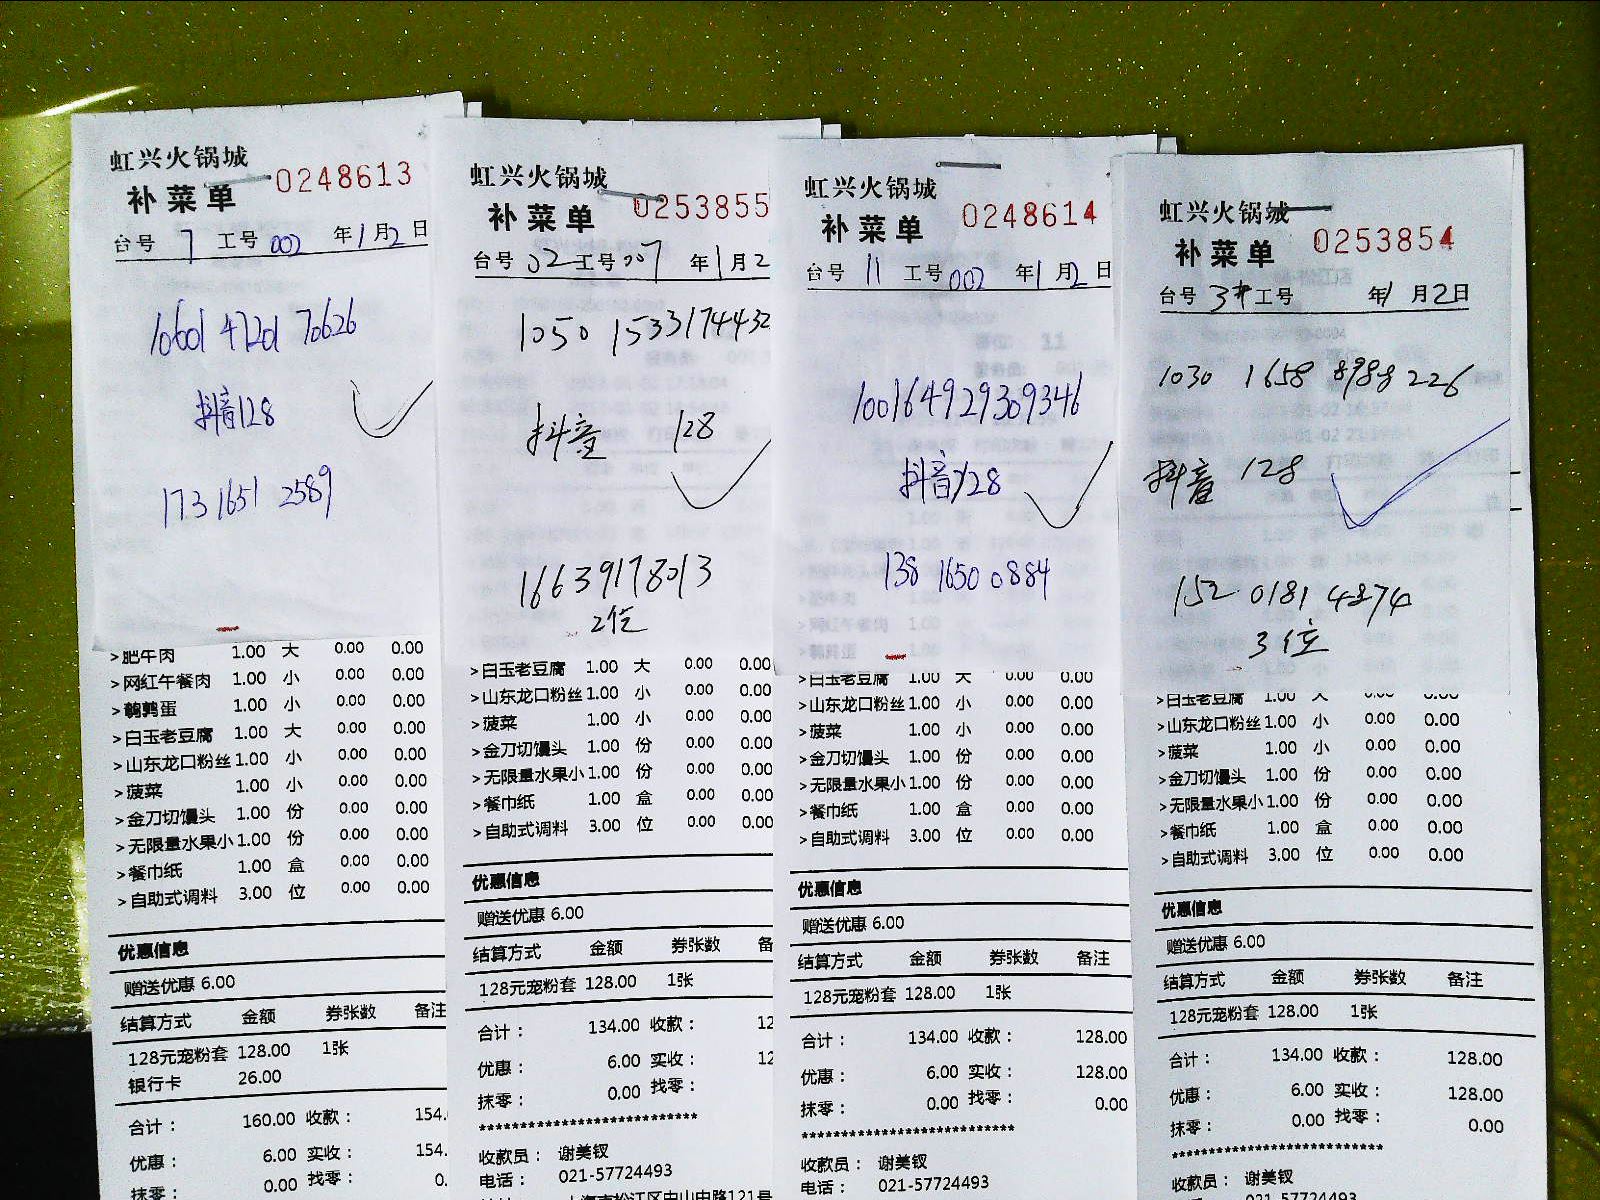 虹兴火锅城
补菜单 0248613
台号 7 工号 002 年 1 月 2 日
10601 47201 70626
抖音128
173 1651 2589
>肥牛肉 1.00 大 0.00 0.00
>网红午餐肉 1.00 小 0.00 0.00
>鹌鹑蛋 1.00 小 0.00 0.00
>白玉老豆腐 1.00 大 0.00 0.00
>山东龙口粉丝 1.00 小 0.00 0.00
>菠菜 1.00 小 0.00 0.00
>金刀切馒头 1.00 份 0.00 0.00
>无限量水果小 1.00 份 0.00 0.00
>餐巾纸 1.00 盒 0.00 0.00
>自助式调料 3.00 位 0.00 0.00
优惠信息
赠送优惠 6.00
结算方式 金额 券张数 备注
128元宠粉套 128.00 1张
银行卡 26.00
合计： 160.00 收款： 154.
优惠： 6.00 实收： 154.
抹零： 0.00 找零： 0.
虹兴火锅城
补菜单 0253855
台号 02 工号 007 年 1 月 2
1050 1533174432
抖音 128
16639178013
2位
>白玉老豆腐 1.00 大 0.00 0.00
>山东龙口粉丝 1.00 小 0.00 0.00
>菠菜 1.00 小 0.00 0.00
>金刀切馒头 1.00 份 0.00 0.00
>无限量水果小 1.00 份 0.00 0.00
>餐巾纸 1.00 盒 0.00 0.00
>自助式调料 3.00 位 0.00 0.00
优惠信息
赠送优惠 6.00
结算方式 金额 券张数 备
128元宠粉套 128.00 1张
合计： 134.00 收款： 12
优惠： 6.00 实收： 12
抹零： 0.00 找零：
***************************
收款员： 谢美钗
电话： 021-57724493
上海市松江区中山中路121号
虹兴火锅城
补菜单 0248614
台号 11 工号 002 年 1 月 2 日
100164929309346
抖音128
138 1650 0884
>白玉老豆腐 1.00 大 0.00 0.00
>山东龙口粉丝 1.00 小 0.00 0.00
>菠菜 1.00 小 0.00 0.00
>金刀切馒头 1.00 份 0.00 0.00
>无限量水果小 1.00 份 0.00 0.00
>餐巾纸 1.00 盒 0.00 0.00
>自助式调料 3.00 位 0.00 0.00
优惠信息
赠送优惠 6.00
结算方式 金额 券张数 备注
128元宠粉套 128.00 1张
合计： 134.00 收款： 128.00
优惠： 6.00 实收： 128.00
抹零： 0.00 找零： 0.00
***************************
收款员： 谢美钗
电话： 021-57724493
虹兴火锅城
补菜单 0253854
台号 3# 工号 年 1 月 2 日
1030 1658 8988 226
抖音 128
152 0181 4874
3位
>白玉老豆腐 1.00 大 0.00 0.00
>山东龙口粉丝 1.00 小 0.00 0.00
>菠菜 1.00 小 0.00 0.00
>金刀切馒头 1.00 份 0.00 0.00
>无限量水果小 1.00 份 0.00 0.00
>餐巾纸 1.00 盒 0.00 0.00
>自助式调料 3.00 位 0.00 0.00
优惠信息
赠送优惠 6.00
结算方式 金额 券张数 备注
128元宠粉套 128.00 1张
合计： 134.00 收款： 128.00
优惠： 6.00 实收： 128.00
抹零： 0.00 找零： 0.00
***************************
收款员： 谢美钗
021-57724493